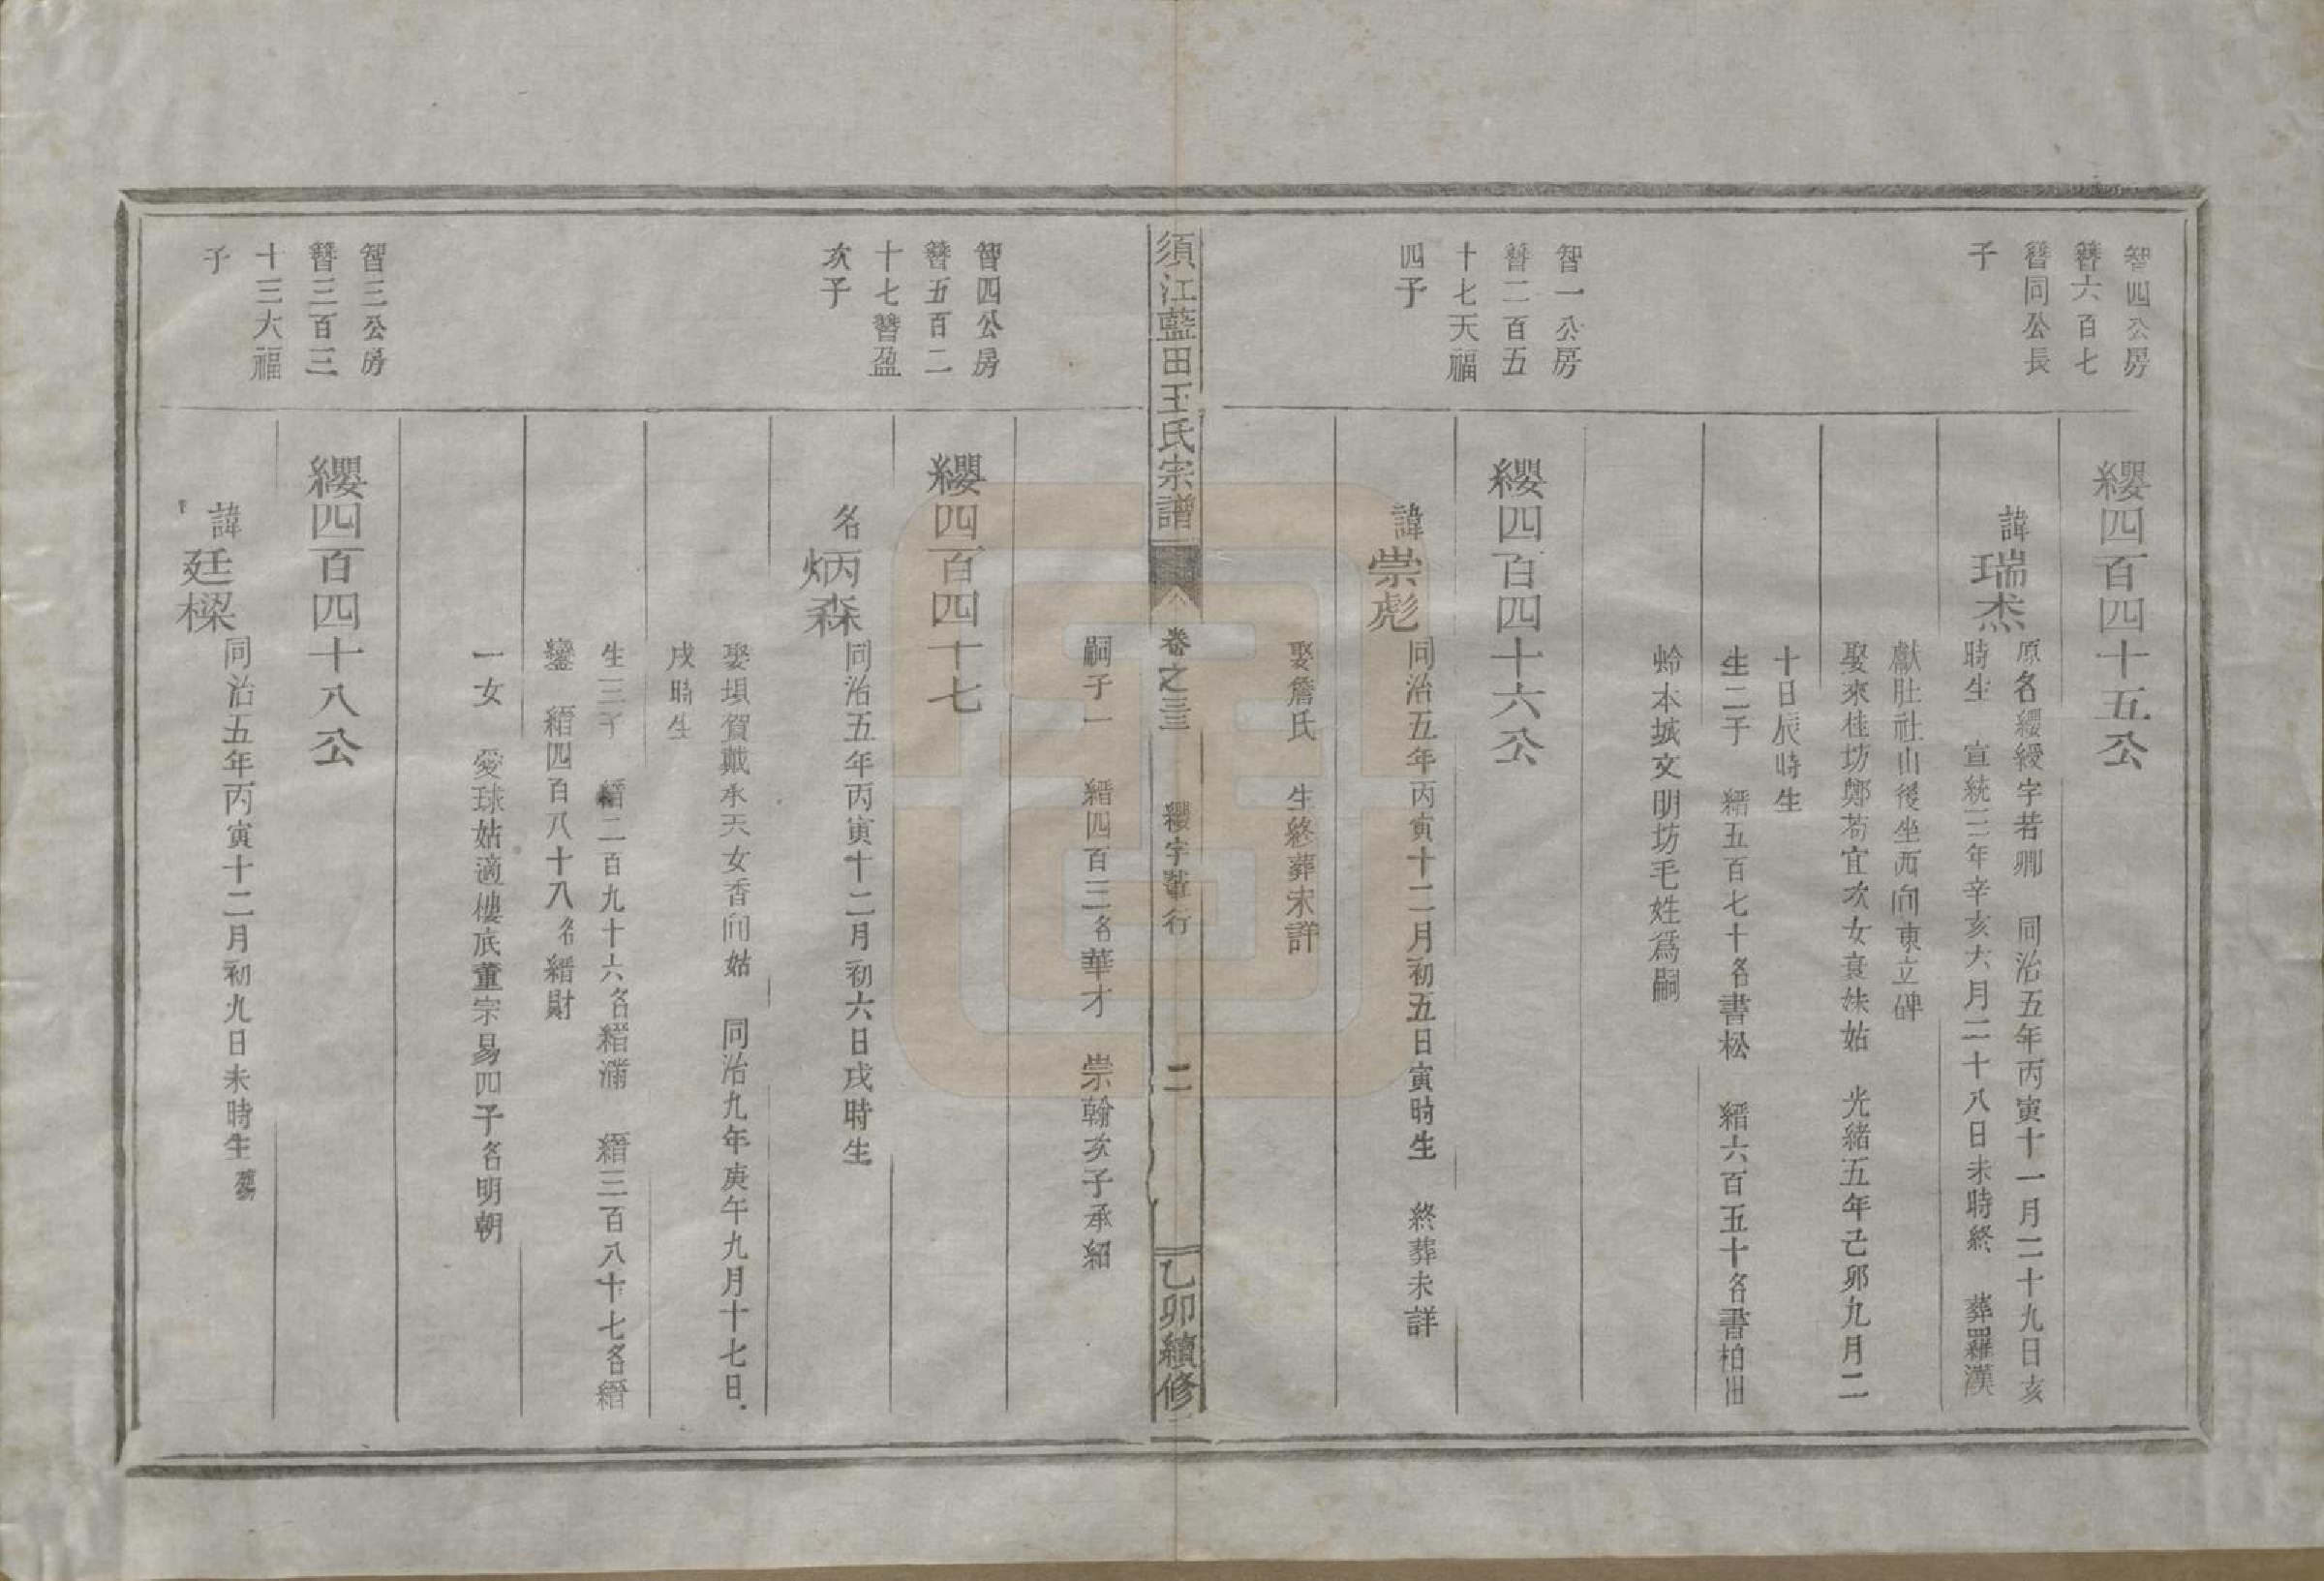 智四公房
簪六百七
簪同公長
子
纓四百四十五公
諱瑞杰
原名纓綬字若卿 同治五年丙寅十一月二十九日亥
時生 宣統三年辛亥六月二十八日未時終 葬羅漢
獻肚社山後坐西向東立碑
娶來桂坊鄭苟宜次女衰妹姑 光緒五年己卯九月二
十日辰時生
生二子 縉五百七十名書松 縉六百五十名書柏出
蛉本城文明坊毛姓爲嗣
智一公房
簪二百五
十七天福
四子
纓四百四十六公
諱崇彪
同治五年丙寅十二月初五日寅時生 終葬未詳
娶詹氏 生終葬未詳
須江藍田王氏宗譜
卷之三
纓字輩行
二
乙卯續修
嗣子一 縉四百三名華才 崇翰次子承紹
智四公房
簪五百二
十七簪盈
次子
纓四百四十七
名炳森
同治五年丙寅十二月初六日戌時生
娶垻賀戴承天女香向姑 同治九年庚午九月十七日
戌時生
生三子 縉二百九十六名縉滿 縉三百八十七名縉
鑾 縉四百八十八名縉財
一女 愛球姑適樓底董宗易四子名明朝
智三公房
簪三百三
十三大福
子
纓四百四十八公
諱廷樑
同治五年丙寅十二月初九日未時生